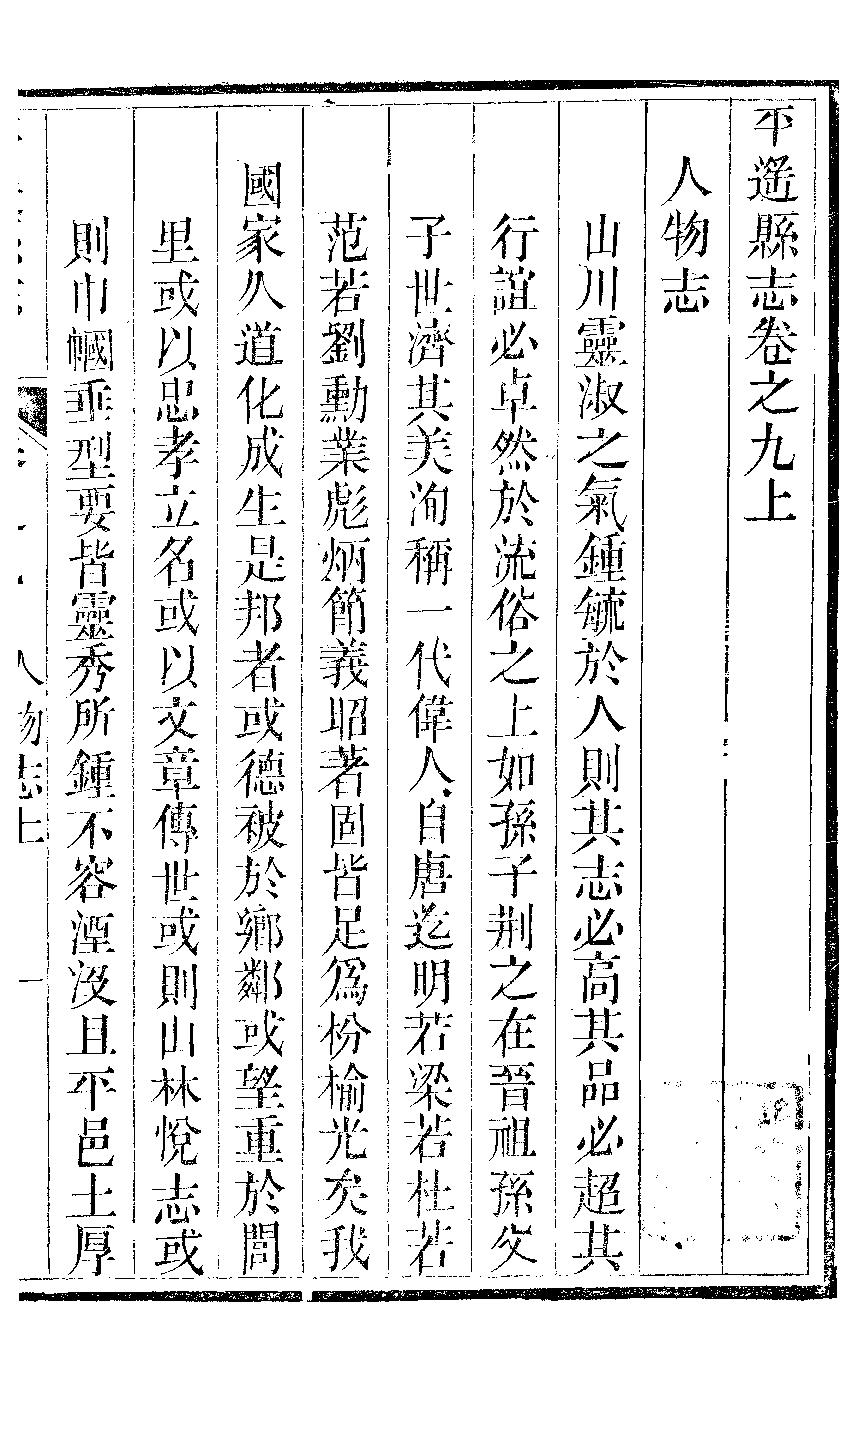 平遙縣志卷之九上
人物志
山川靈淑之氣鍾毓於人則其志必高其品必超其
行誼必卓然於流俗之上如孫子荆之在晉祖孫父
子世濟其美洵稱一代偉人自唐迄明若梁若杜若
范若劉勳業彪炳節義昭著固皆足爲枌榆光矣我
國家久道化成生是邦者或德被於鄉鄰或望重於閭
里或以忠孝立名或以文章傳世或則山林悅志或
則巾幗垂型要皆靈秀所鍾不容湮沒且平邑土厚
人物志上 一